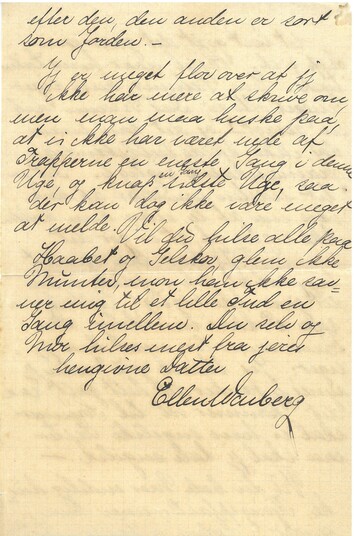 efter den, den anden er sort
som Jorden. –
Jeg er meget flov over at jeg
ikke har mere at skrive om
men man maa huske paa
at vi ikke har været ude af
Trapperne en eneste Gang i denne
Uge, og knap en Gang sidste Uge, saa
der kan dog ikke være meget
at melde. Vil du hilse alle paa
Haabet og Selskov, glem ikke
Munter, mon han ikke sav=
ner mig til et lille Fud en
Gang imellem. Du selv og
Mor hilses mest fra jeres
hengivne Datter
Ellen